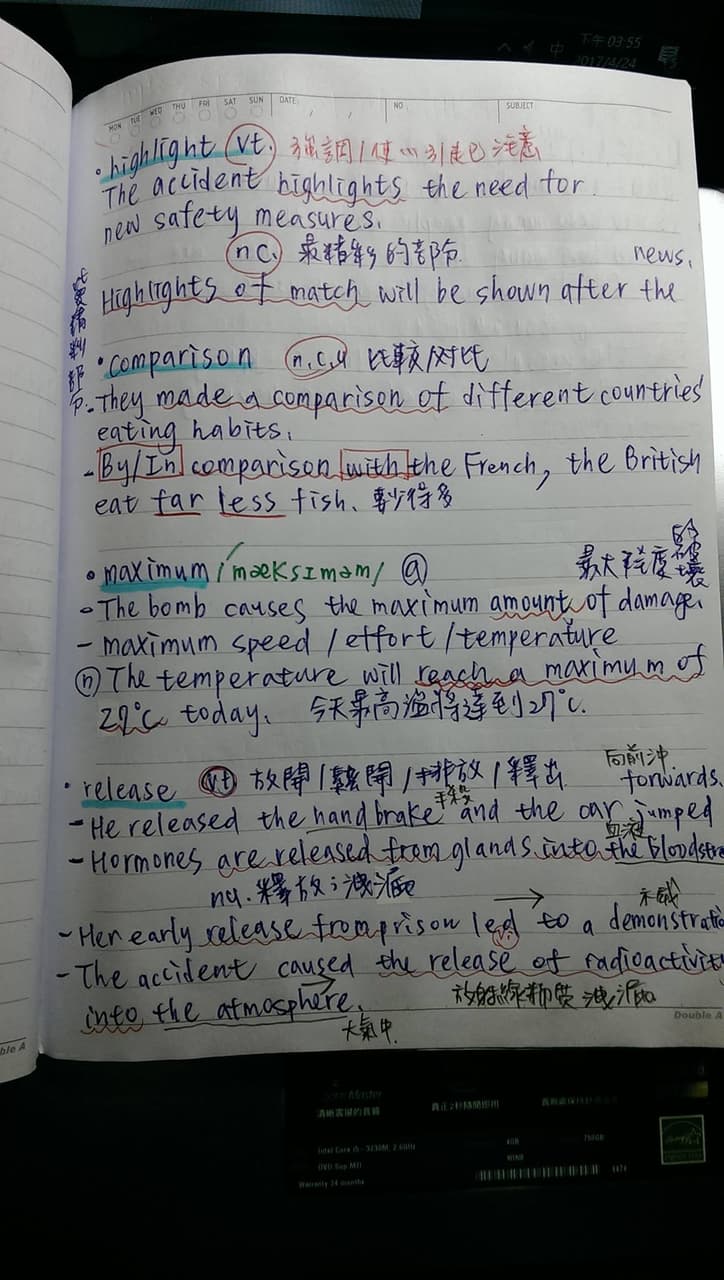 下午 03:55
2017/4/24
MON TUE WED THU FRI SAT SUN DATE: / / NO. SUBJECT
• highlight vt. 強調/使⋯引起已注意
The accident highlights the need for
new safety measures.
n c. 最精彩的部份 news.
Highlights of match will be shown after the
比賽精彩部份
• comparison n,c,u 比較/对比
- They made a comparison of different countries'
eating habits.
- By/In comparison with the French, the British
eat far less fish. 少得多
• maximum /ˈmæksɪməm/ ⓐ 最大程度的破壞
- The bomb causes the maximum amount of damage.
- maximum speed / effort / temperature
ⓝ The temperature will reach a maximum of
27°C today. 今天最高溫將達到27°C.
• release vt 放開/鬆開/排放/釋出 向前沖 forwards.
- He released the handbrake and the car jumped
手殺
- Hormones are released from glands into the bloodstre
血液
nu. 釋放;洩漏
- Her early release from prison led to a demonstratio
v. 示威
- The accident caused the release of radioactivity
into the atmosphere. 放射線物質洩漏
大氣中.
Double A
ble A
Intel Core i5 - 3230M, 2.6GHz 4GB 750GB
Warranty 24 months